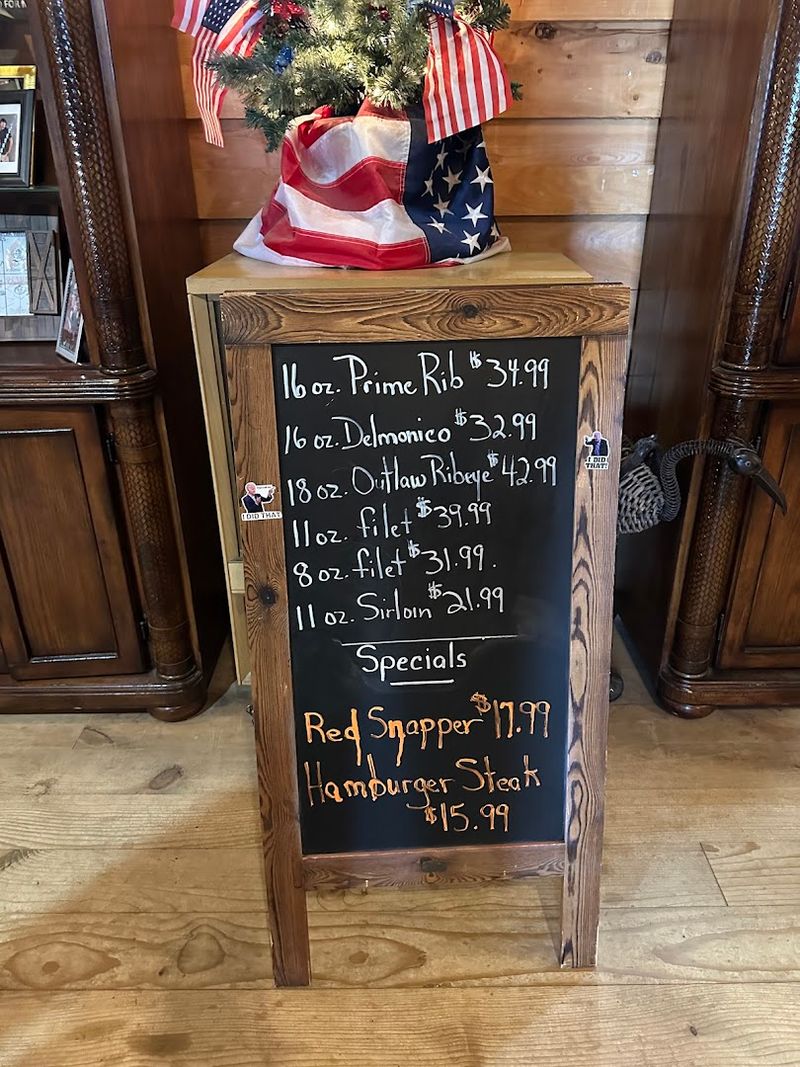 16 oz. Prime Rib $34.99
16 oz. Delmonico $32.99
18 oz. Outlaw Ribeye $42.99
11 oz. filet $39.99
8 oz. filet $31.99.
11 oz. Sirloin $21.99
Specials
Red Snapper $17.99
Hamburger Steak
$15.99
I DID THAT!
I DID
THAT!